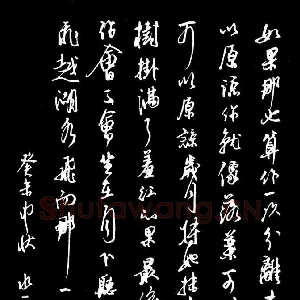 如果那也算作一次分離
以原諒你就像落葉可
可以原諒歲月將她掛
樹掛滿了羞紅如果最後
你會不會坐在月下聽
飛越湖水飛向那一
癸未中秋
Shufawang.CN